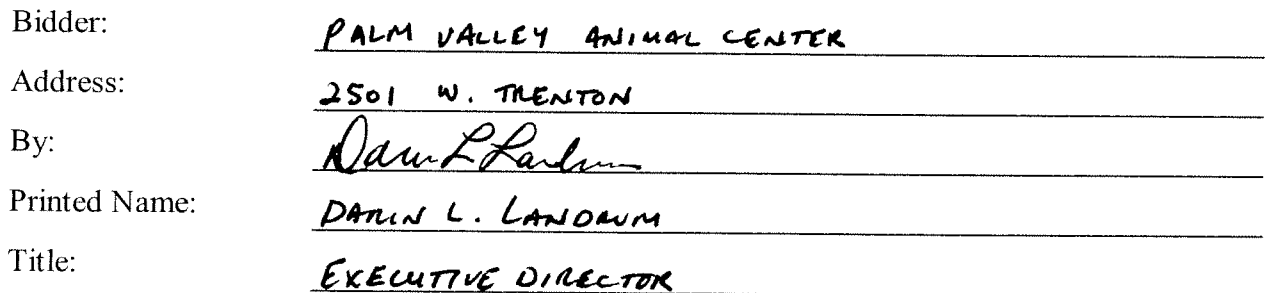 Bidder: PALM VALLEY ANIMAL CENTER
Address: 2501 W. TRENTON
By: Darin L Landrum
Printed Name: DARIN L. LANDRUM
Title: EXECUTIVE DIRECTOR